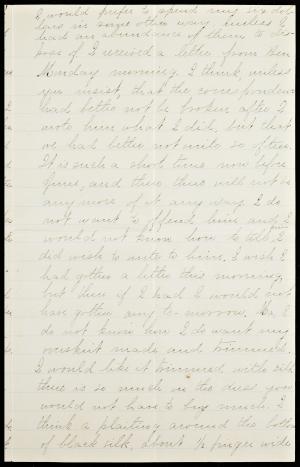 I would prefer to spend my six dol-
lars in some other way, unless I
had an abundance of them to dis-
pose of. I received a letter from Ben
Monday morning. I think, unless
you insist, that the correspondence
had better not be broken after I
wrote him what I did, but that
we had better not write so often.
It is such a short time now before
June, and then there will not be
any more of it any way. I do
not want to offend him and I
would not know how to tell if I
did wish to write to him. I wish I
had gotten a letter this morning,
but then if I had I would not
have gotten any to-morrow. Ma, I
do not know how I do want my
overskirt made and trimmed.
I would like it trimmed with silk
there is so much in the dress you
would not have to buy much. I
think a plaiting around the bottom
of black silk, about ½ finger wide